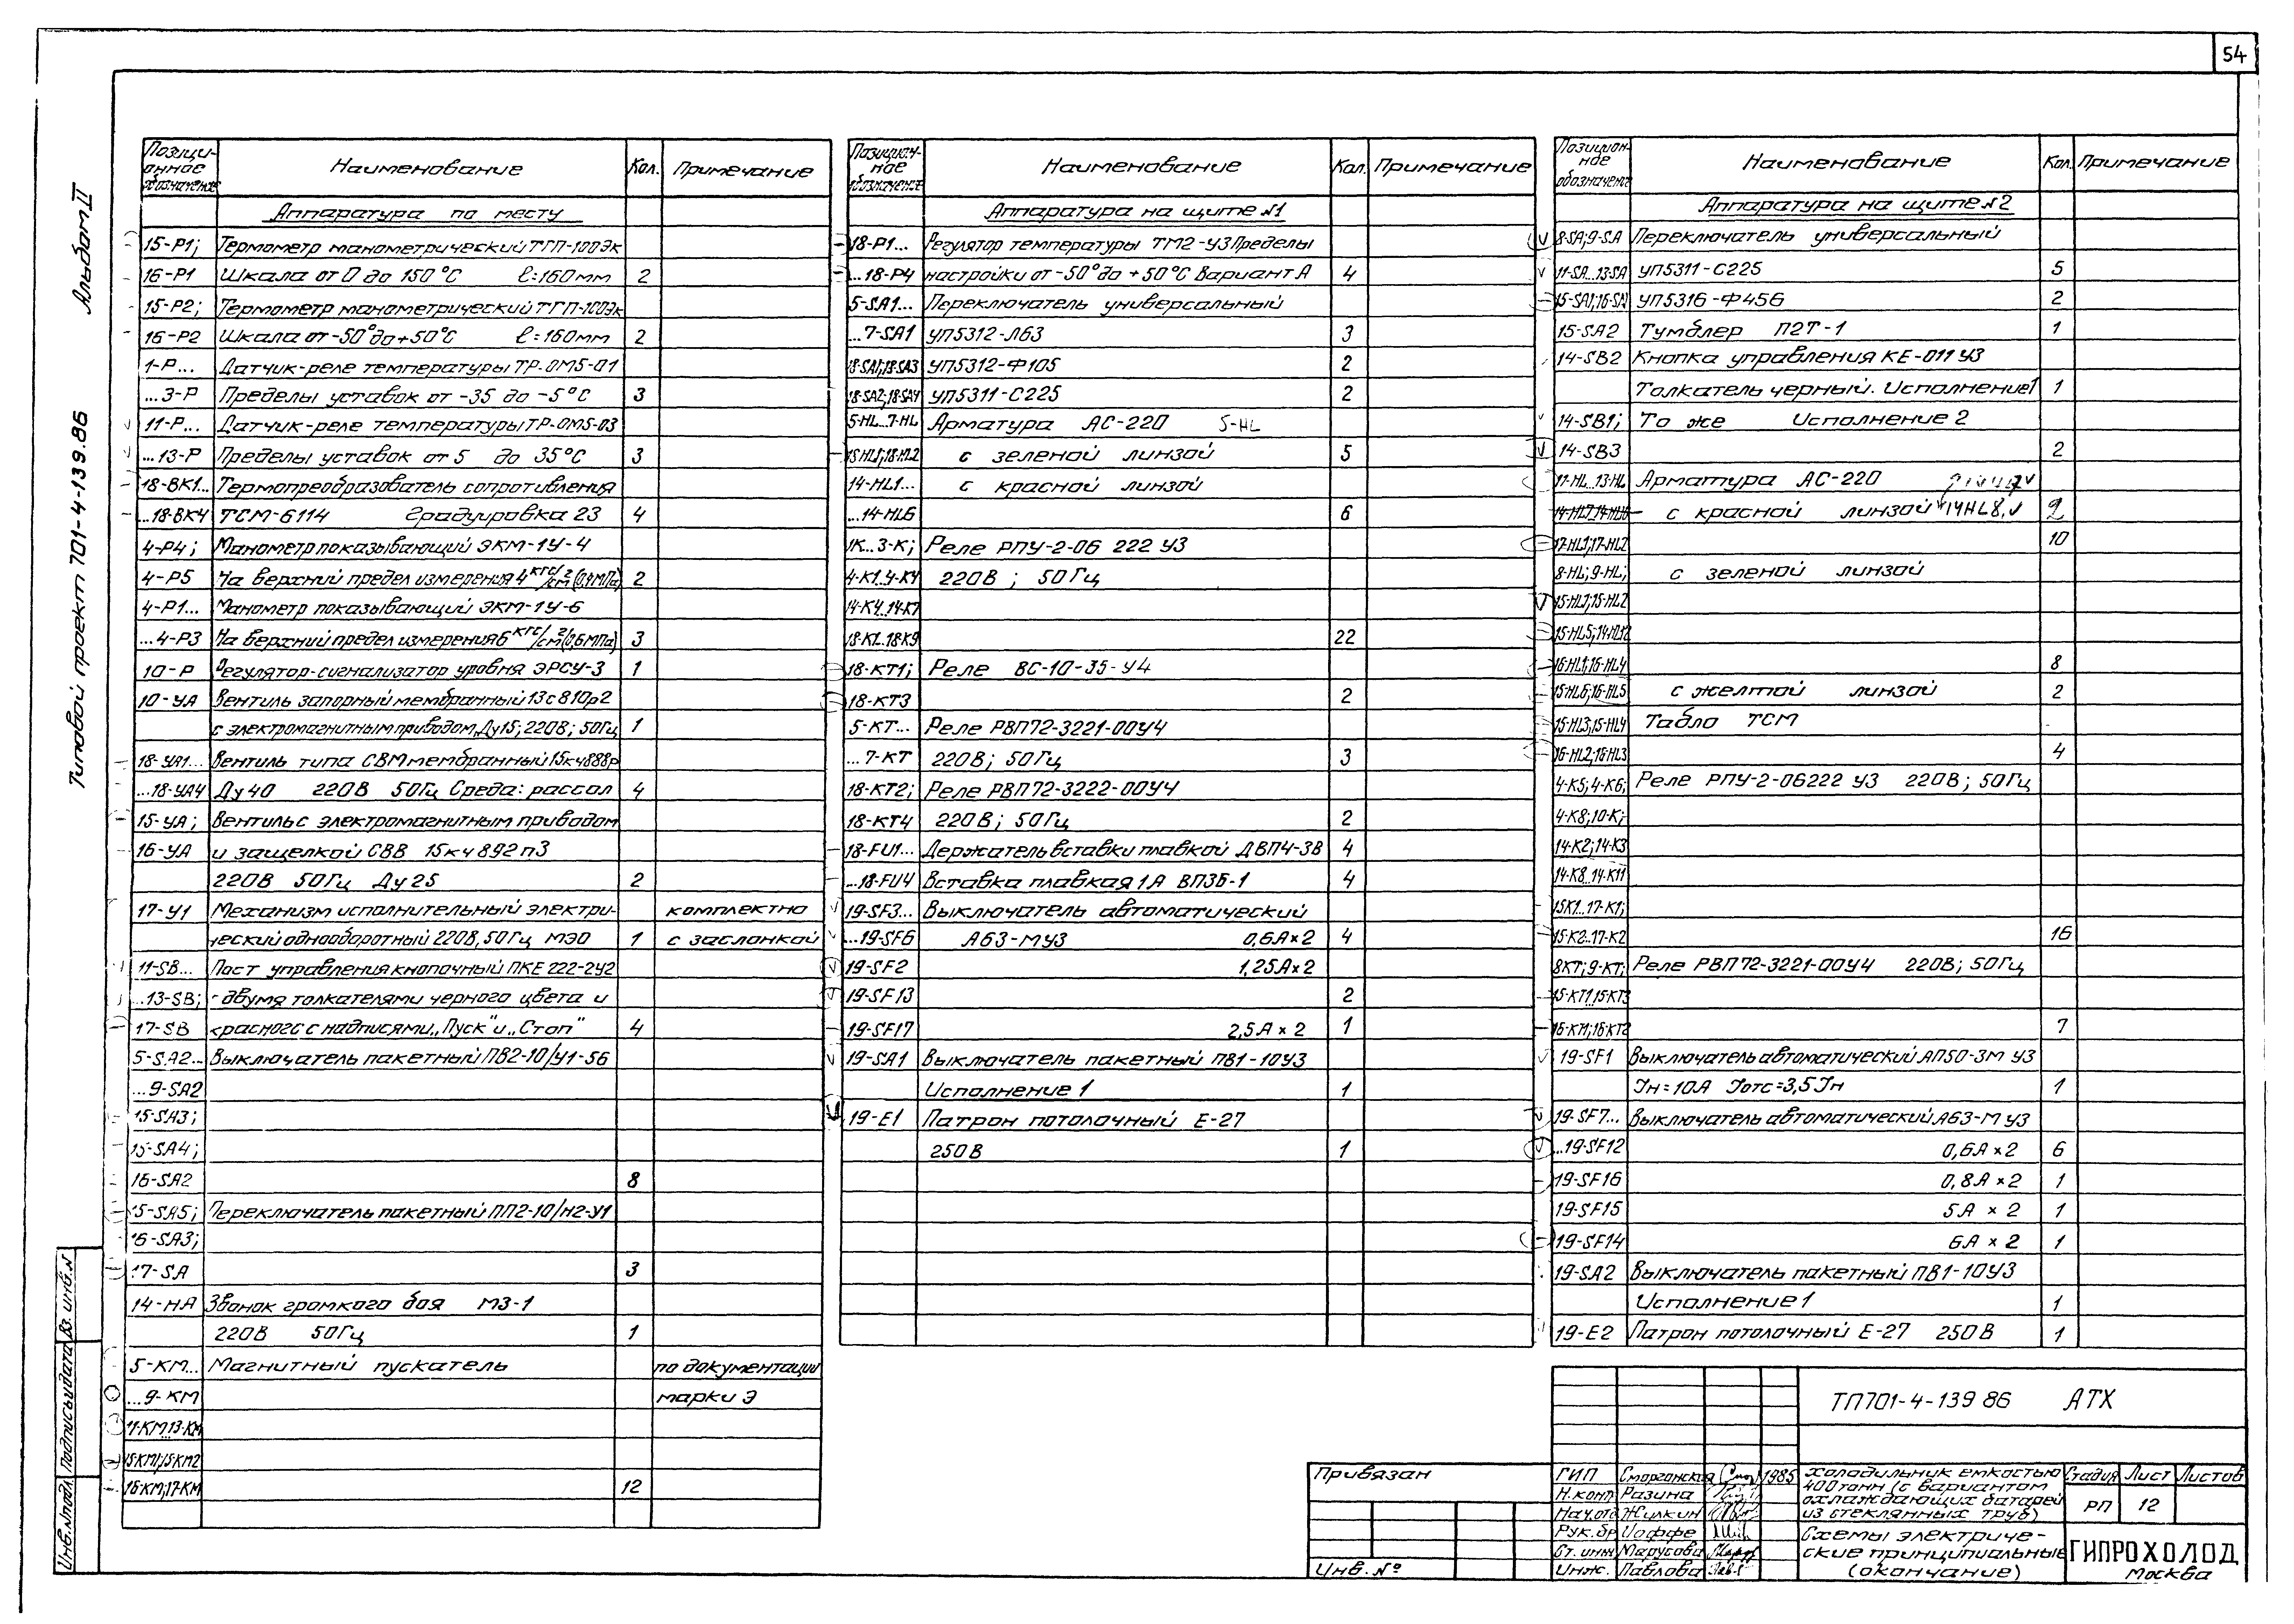 54
Альбом II
Типовой проект 701-4-139.86
Позици-
онное
обозначение
Наименование
Кол.
Примечание
Аппаратура по месту
15-Р1; Термометр манометрический ТГП-100Эк
16-Р1 Шкала от 0 до 150°С ℓ=160мм 2
15-Р2; Термометр манометрический ТГП-100Эк
16-Р2 Шкала от -50° до +50°С ℓ=160мм 2
1-Р... Датчик-реле температуры ТР-ОМ5-01
...3-Р Пределы уставок от -35 до -5°С 3
11-Р... Датчик-реле температуры ТР-ОМ5-03
...13-Р Пределы уставок от 5 до 35°С 3
18-ВК1... Термопреобразователь сопротивления
...18-ВК4 ТСМ-6114 Градуировка 23 4
4-Р4; Манометр показывающий ЭКМ-1У-4
4-Р5 На верхний предел измерения 4 кгс/см² (0,4МПа) 2
4-Р1... Манометр показывающий ЭКМ-1У-6
...4-Р3 На верхний предел измерения 6 кгс/см² (0,6МПа) 3
10-Р Регулятор-сигнализатор уровня ЭРСУ-3 1
10-УА Вентиль запорный мембранный 13с810р2
с электромагнитным приводом, Ду15; 220В; 50Гц 1
18-УА1... Вентиль типа СВМ мембранный 15кч888р
...18-УА4 Ду 40 220В 50Гц Среда: рассол 4
15-УА; Вентиль с электромагнитным приводом
16-УА и защелкой СВВ 15кч892п3
220В 50Гц Ду 25 2
17-У1 Механизм исполнительный электри- комплектно
ческий однооборотный 220В, 50Гц МЭО 1 с заслонкой
11-SB... Пост управления кнопочный ПКЕ 222-2У2
...13-SB; с двумя толкателями черного цвета и
17-SB красного с надписями „Пуск" и „Стоп" 4
5-SA2... Выключатель пакетный ПВ2-10/У1-56
...9-SA2
15-SA3;
15-SA4;
16-SA2 8
15-SA5; Переключатель пакетный ПП2-10/Н2-У1
16-SA3;
17-SA 3
14-НА Звонок громкого боя МЗ-1
220В 50Гц 1
5-КМ... Магнитный пускатель по документации
...9-КМ марки Э
11-КМ...13-КМ
15-КМ1;15-КМ2
16-КМ;17-КМ 12
Позицион-
ное
обозначение
Наименование
Кол.
Примечание
Аппаратура на щите №1
18-Р1... Регулятор температуры ТМ2-У3 Пределы
...18-Р4 настройки от -50° до +50°С Вариант А 4
5-SA1... Переключатель универсальный
...7-SA1 УП5312-Л63 3
18-SA1;18-SA3 УП5312-Ф105 2
18-SA2;18-SA4 УП5311-С225 2
5-HL...7-HL Арматура АС-220 5-HL
18-HL1;18-HL2 с зеленой линзой 5
14-HL1... с красной линзой
...14-HL6 6
1К...3-К; Реле РПУ-2-06 222 У3
4-К1...4-К4 220В; 50Гц
14-К4...14-К7
18-К1...18-К9 22
18-КТ1; Реле ВС-10-35-У4
18-КТ3 2
5-КТ... Реле РВП72-3221-00У4
...7-КТ 220В; 50Гц 3
18-КТ2; Реле РВП72-3222-00У4
18-КТ4 220В; 50Гц 2
18-FU1... Держатель вставки плавкой ДВП4-3В 4
...18-FU4 Вставка плавкая 1А ВП3Б-1 4
19-SF3... Выключатель автоматический
...19-SF6 А63-МУ3 0,6А×2 4
19-SF2 1,25А×2
19-SF13 2
19-SF17 2,5А×2 1
19-SA1 Выключатель пакетный ПВ1-10У3
Исполнение 1 1
19-Е1 Патрон потолочный Е-27
250В 1
Позицион-
ное
обозначение
Наименование
Кол.
Примечание
Аппаратура на щите №2
8-SA;9-SA Переключатель универсальный
11-SA...13-SA УП5311-С225 5
15-SA1;16-SA1 УП5316-Ф456 2
15-SA2 Тумблер П2Т-1 1
14-SB2 Кнопка управления КЕ-011 У3
Толкатель черный. Исполнение 1 1
14-SB1; То же Исполнение 2
14-SB3 2
11-HL...13-HL Арматура АС-220
14-HL7,14-HL8 с красной линзой 14HL8,
17-HL1;17-HL2 10
8-HL;9-HL; с зеленой линзой
15-HL1;15-HL2
15-HL5;14-HL12
16-HL1;16-HL4 8
15-HL6;16-HL5 с желтой линзой 2
15-HL3;15-HL4 Табло ТСМ
16-HL2;16-HL3 4
4-К5;4-К6; Реле РПУ-2-06222 У3 220В; 50Гц
4-К8;10-К;
14-К2;14-К3
14-К8...14-К11
15К1...17-К1;
15-К2...17-К2 16
8КТ;9-КТ; Реле РВП72-3221-00У4 220В; 50Гц
15-КТ1...15-КТ3
16-КТ1;16-КТ2 7
19-SF1 Выключатель автоматический АП50-3М У3
Iн=10А Iотс=3,5Iн 1
19-SF7... Выключатель автоматический А63-М У3
...19-SF12 0,6А×2 6
19-SF16 0,8А×2 1
19-SF15 5А × 2 1
19-SF14 6А × 2 1
19-SA2 Выключатель пакетный ПВ1-10У3
Исполнение 1 1
19-Е2 Патрон потолочный Е-27 250В 1
ТП701-4-139 86 АТХ
Привязан
Инв. №
ГИП Сморгонская 1985
Н.конт Разина
Нач.отд Жулкин
Рук.бр Иоффе
Ст. инж Марусова
Инж. Павлова
Холодильник емкостью
400 тонн (с вариантом
охлаждающих батарей
из стеклянных труб)
Стадия Лист Листов
РП 12
Схемы электриче-
ские принципиальные
(окончание)
ГИПРОХОЛОД
Москва
Инв.№подл. Подпись и дата Вз. инв. №